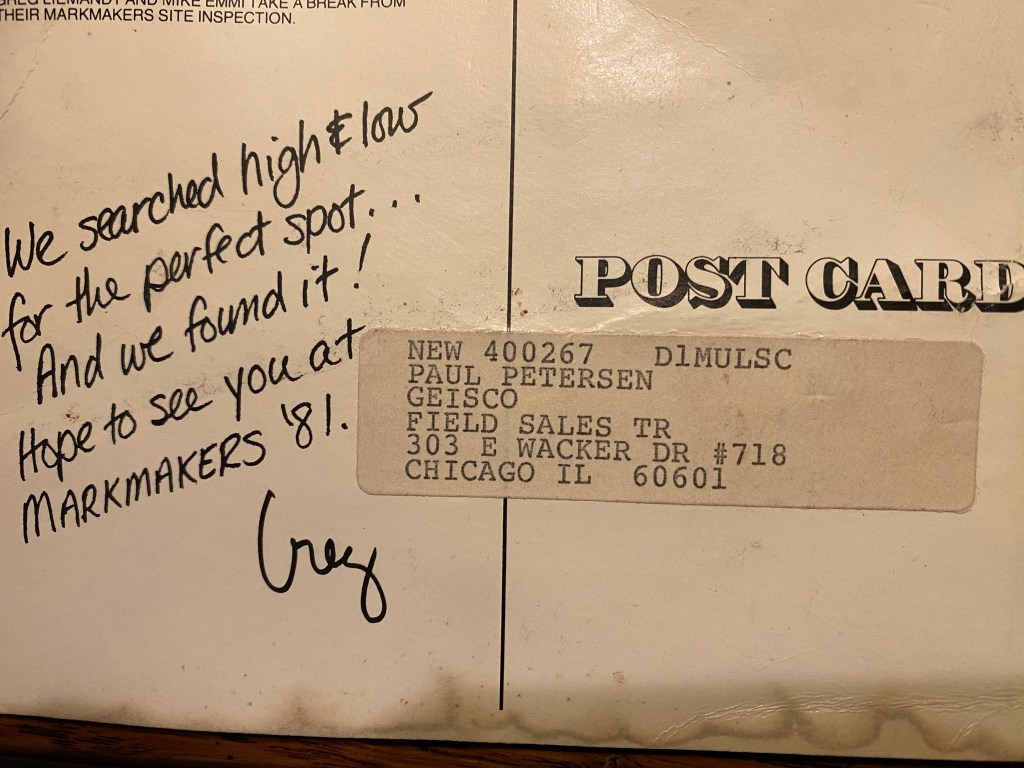 GREG LIEMANDT AND MIKE EMMI TAKE A BREAK FROM
THEIR MARKMAKERS SITE INSPECTION.
We searched high & low
for the perfect spot...
And we found it!
Hope to see you at
MARKMAKERS '81.
Greg
POST CARD
NEW 400267 D1MULSC
PAUL PETERSEN
GEISCO
FIELD SALES TR
303 E WACKER DR #718
CHICAGO IL 60601